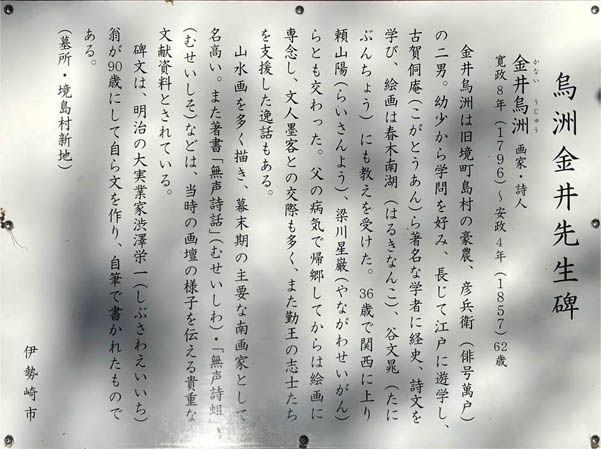 烏洲金井先生碑
金井烏洲 画家・詩人
かない うじゅう
寛政8年(1796)~安政4年(1857)62歳
金井烏洲は旧境町島村の豪農、彦兵衛(俳号萬戸)
の二男。幼少から学問を好み、長じて江戸に遊学し、
古賀侗庵(こがとうあん)ら著名な学者に経史、詩文を
学び、絵画は春木南湖(はるきなんこ)、谷文晁(たに
ぶんちょう)にも教えを受けた。36歳で関西に上り
頼山陽(らいさんよう)、梁川星巌(やながわせいがん)
らとも交わった。父の病気で帰郷してからは絵画に
専念し、文人墨客との交際も多く、また勤王の志士たち
を支援した逸話もある。
山水画を多く描き、幕末期の主要な南画家として
名高い。また著書「無声詩話」(むせいしわ)・「無声詩蛆」、
(むせいしそ)などは、当時の画壇の様子を伝える貴重な
文献資料とされている。
碑文は、明治の大実業家渋澤栄一(しぶさわえいいち)
翁が90歳にして自ら文を作り、自筆で書かれたもので
ある。
(墓所・境島村新地)
伊勢崎市